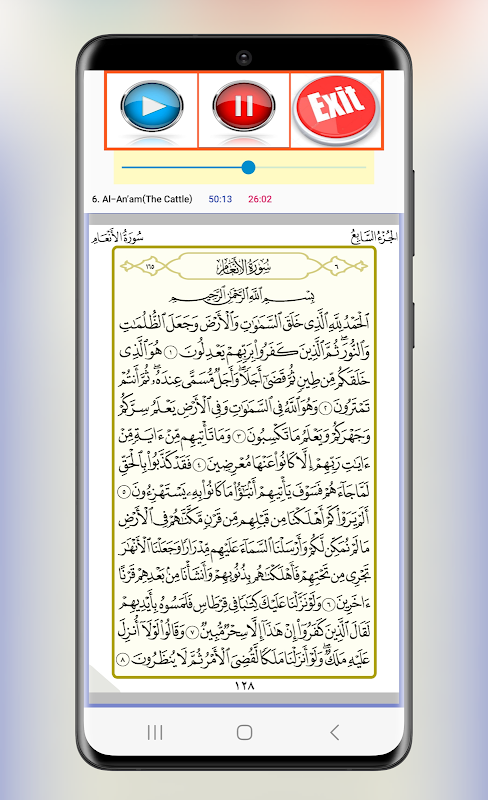 Exit
6. Al-An'am(The Cattle) 50:13 26:02
سُورَةُ الأَنْعَامِ الجُزْءُ السَّابِعُ
١٦٥ سُورَةُ الأَنْعَامِ ٦
بِسْمِ ٱللَّهِ ٱلرَّحْمَٰنِ ٱلرَّحِيمِ
ٱلْحَمْدُ لِلَّهِ ٱلَّذِى خَلَقَ ٱلسَّمَٰوَٰتِ وَٱلْأَرْضَ وَجَعَلَ ٱلظُّلُمَٰتِ
وَٱلنُّورَ ۖ ثُمَّ ٱلَّذِينَ كَفَرُوا۟ بِرَبِّهِمْ يَعْدِلُونَ ١ هُوَ ٱلَّذِى
خَلَقَكُم مِّن طِينٍ ثُمَّ قَضَىٰٓ أَجَلًا ۖ وَأَجَلٌ مُّسَمًّى عِندَهُۥ ۖ ثُمَّ أَنتُمْ
تَمْتَرُونَ ٢ وَهُوَ ٱللَّهُ فِى ٱلسَّمَٰوَٰتِ وَفِى ٱلْأَرْضِ ۖ يَعْلَمُ سِرَّكُمْ
وَجَهْرَكُمْ وَيَعْلَمُ مَا تَكْسِبُونَ ٣ وَمَا تَأْتِيهِم مِّنْ ءَايَةٍ مِّنْ
ءَايَٰتِ رَبِّهِمْ إِلَّا كَانُوا۟ عَنْهَا مُعْرِضِينَ ٤ فَقَدْ كَذَّبُوا۟ بِٱلْحَقِّ
لَمَّا جَآءَهُمْ ۖ فَسَوْفَ يَأْتِيهِمْ أَنۢبَٰٓؤُا۟ مَا كَانُوا۟ بِهِۦ يَسْتَهْزِءُونَ ٥
أَلَمْ يَرَوْا۟ كَمْ أَهْلَكْنَا مِن قَبْلِهِم مِّن قَرْنٍ مَّكَّنَّٰهُمْ فِى ٱلْأَرْضِ
مَا لَمْ نُمَكِّن لَّكُمْ وَأَرْسَلْنَا ٱلسَّمَآءَ عَلَيْهِم مِّدْرَارًا وَجَعَلْنَا ٱلْأَنْهَٰرَ
تَجْرِى مِن تَحْتِهِمْ فَأَهْلَكْنَٰهُم بِذُنُوبِهِمْ وَأَنشَأْنَا مِنۢ بَعْدِهِمْ قَرْنًا
ءَاخَرِينَ ٦ وَلَوْ نَزَّلْنَا عَلَيْكَ كِتَٰبًا فِى قِرْطَاسٍ فَلَمَسُوهُ بِأَيْدِيهِمْ
لَقَالَ ٱلَّذِينَ كَفَرُوٓا۟ إِنْ هَٰذَآ إِلَّا سِحْرٌ مُّبِينٌ ٧ وَقَالُوا۟ لَوْلَآ أُنزِلَ
عَلَيْهِ مَلَكٌ ۖ وَلَوْ أَنزَلْنَا مَلَكًا لَّقُضِىَ ٱلْأَمْرُ ثُمَّ لَا يُنظَرُونَ ٨
١٢٨